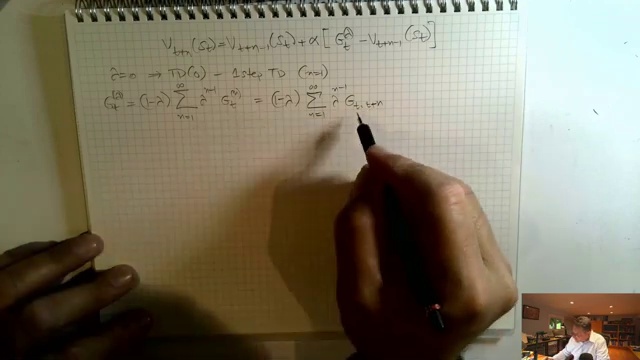 V_{t+n}(S_t) = V_{t+n-1}(S_t) + α[G_t^λ − V_{t+n-1}(S_t)]
λ=0 ⇒ TD(0) – 1 step TD (n=1)
G_t^{(λ)} = (1−λ) ∑_{n=1}^{∞} λ^{n-1} G_t^{(n)} = (1−λ) ∑_{n=1}^{∞} λ^{n-1} G_{t:t+n}